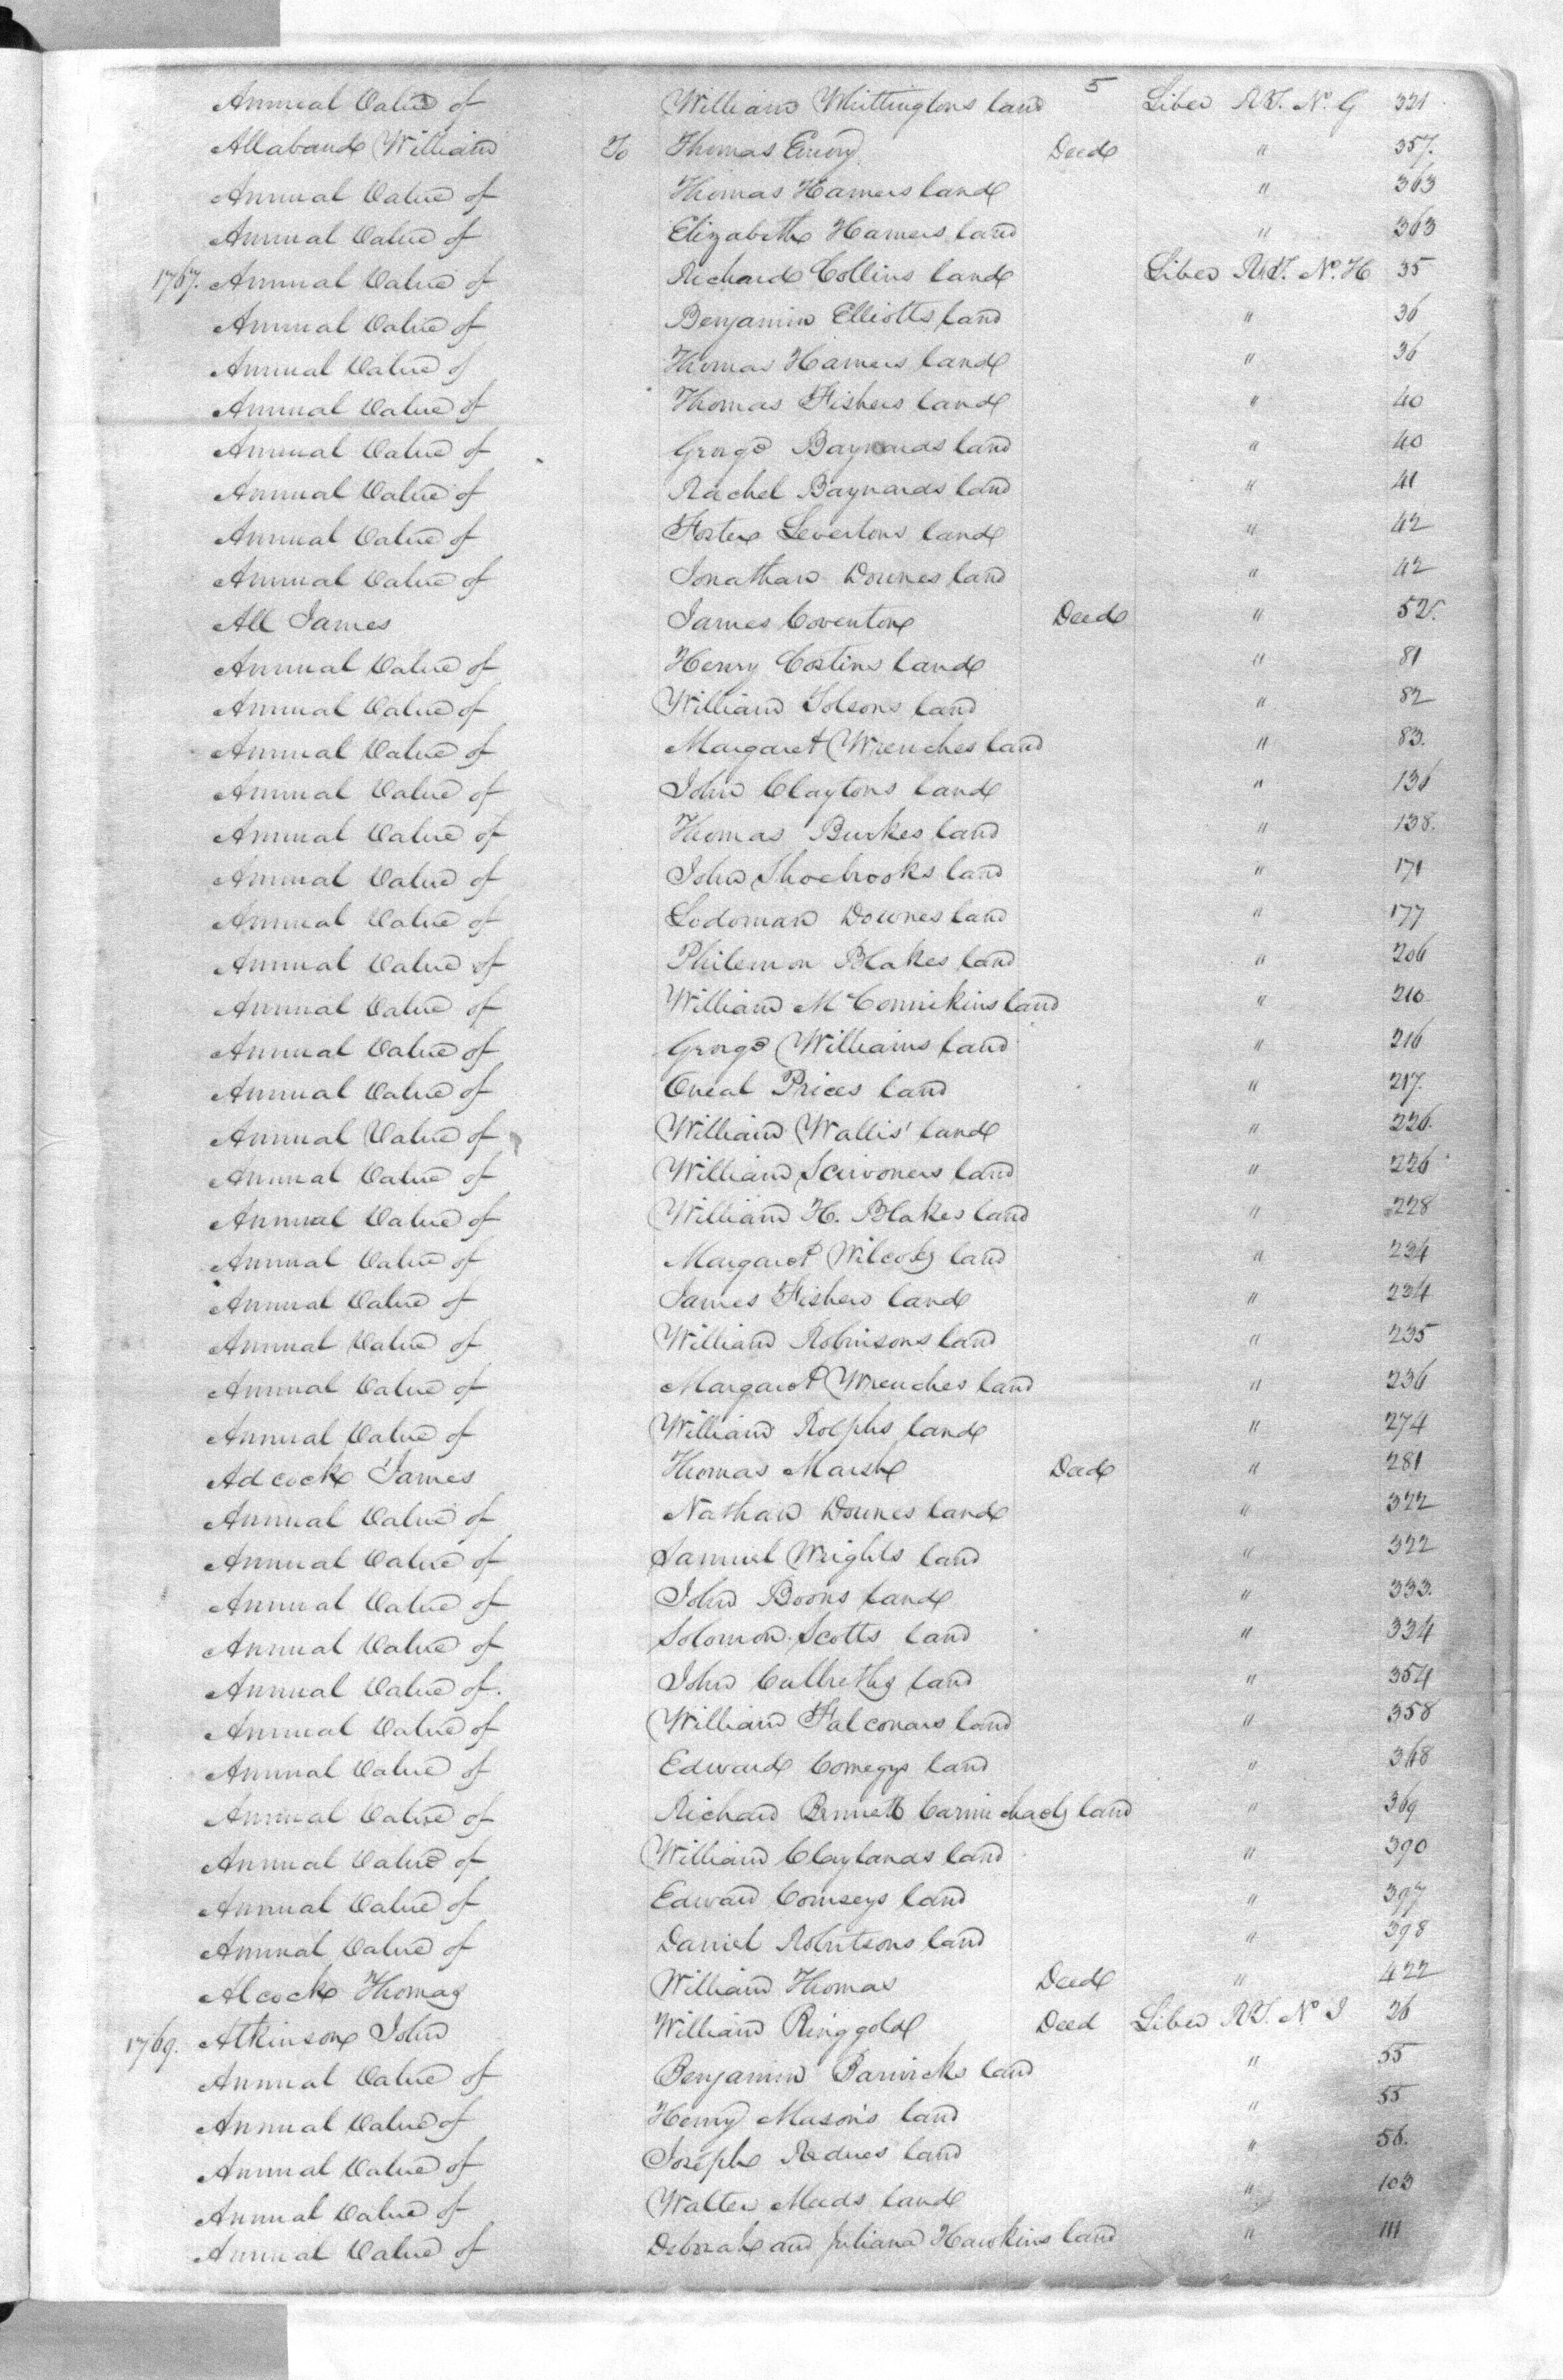 5
Annual Value of William Whittingtons land Liber R.T. No. G 321
Allaband William To Thomas Emory Deed " 357.
Annual Value of Thomas Hamers land " 363
Annual Value of Elizabeth Hamers land " 363
1767. Annual Value of Richard Collins land Liber R.T. No. H 35
Annual Value of Benjamin Elliotts land " 36
Annual Value of Thomas Hamers land " 36
Annual Value of Thomas Fishers land " 40
Annual Value of George Baynards land " 40
Annual Value of Rachel Baynards land " 41
Annual Value of Foster Levertons land " 42
Annual Value of Jonathan Downes land " 42
All James James Coventon Deed " 52.
Annual Value of Henry Costins land " 81
Annual Value of William Tolsons land " 82
Annual Value of Margaret Wrenches land " 83.
Annual Value of John Claytons land " 136
Annual Value of Thomas Burkes land " 138.
Annual Value of John Shoebrooks land " 171
Annual Value of Lodoman Downes land " 177
Annual Value of Philemon Blakes land " 206
Annual Value of William McConnikins land " 210
Annual Value of George Williams land " 216
Annual Value of Oneal Prices land " 217.
Annual Value of William Wallis' land " 226.
Annual Value of William Scrivoners land " 226
Annual Value of William H. Blakes land " 228
Annual Value of Margaret Wilcoks land " 234
Annual Value of James Fishers land " 234
Annual Value of William Robinsons land " 235
Annual Value of Margaret Wrenches land " 236
Annual Value of William Rolphs land " 274
Adcock James Thomas Marsh Deed " 281
Annual Value of Nathan Downes land " 322
Annual Value of Samuel Wrights land " 322
Annual Value of John Boons land " 333.
Annual Value of Solomon Scotts land " 334
Annual Value of John Culbreths land " 354
Annual Value of William Falconars land " 358
Annual Value of Edward Comegys land " 368
Annual Value of Richard Bennett Carmichaels land " 369
Annual Value of William Claylands land " 390
Annual Value of Edward Comseys land " 397
Annual Value of Daniel Robertsons land " 398
Alcock Thomas William Thomas Deed " 422
1769. Atkinson John William Ringgold Deed Liber R.T. No I 26
Annual Value of Benjamin Barwicks land " 55
Annual Value of Henry Mason's land " 55
Annual Value of Joseph Rednes land " 56.
Annual Value of Walter Meeds land " 103
Annual Value of Deborah and Juliana Hawkins land " 111